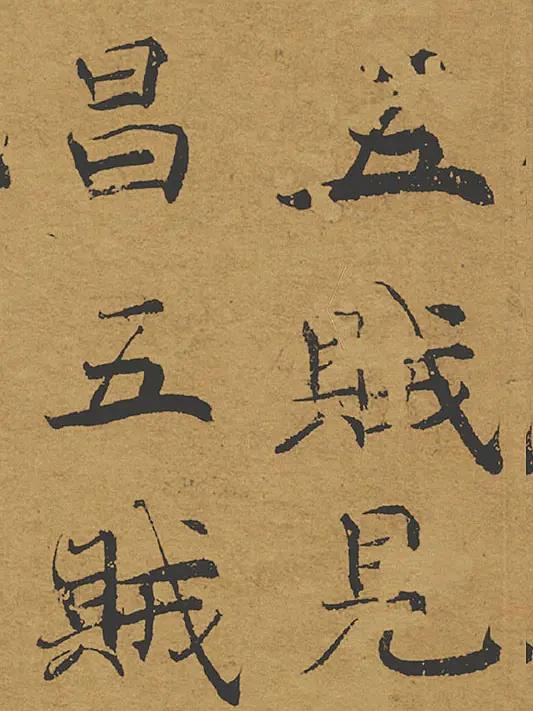 五賊見
昌五賊